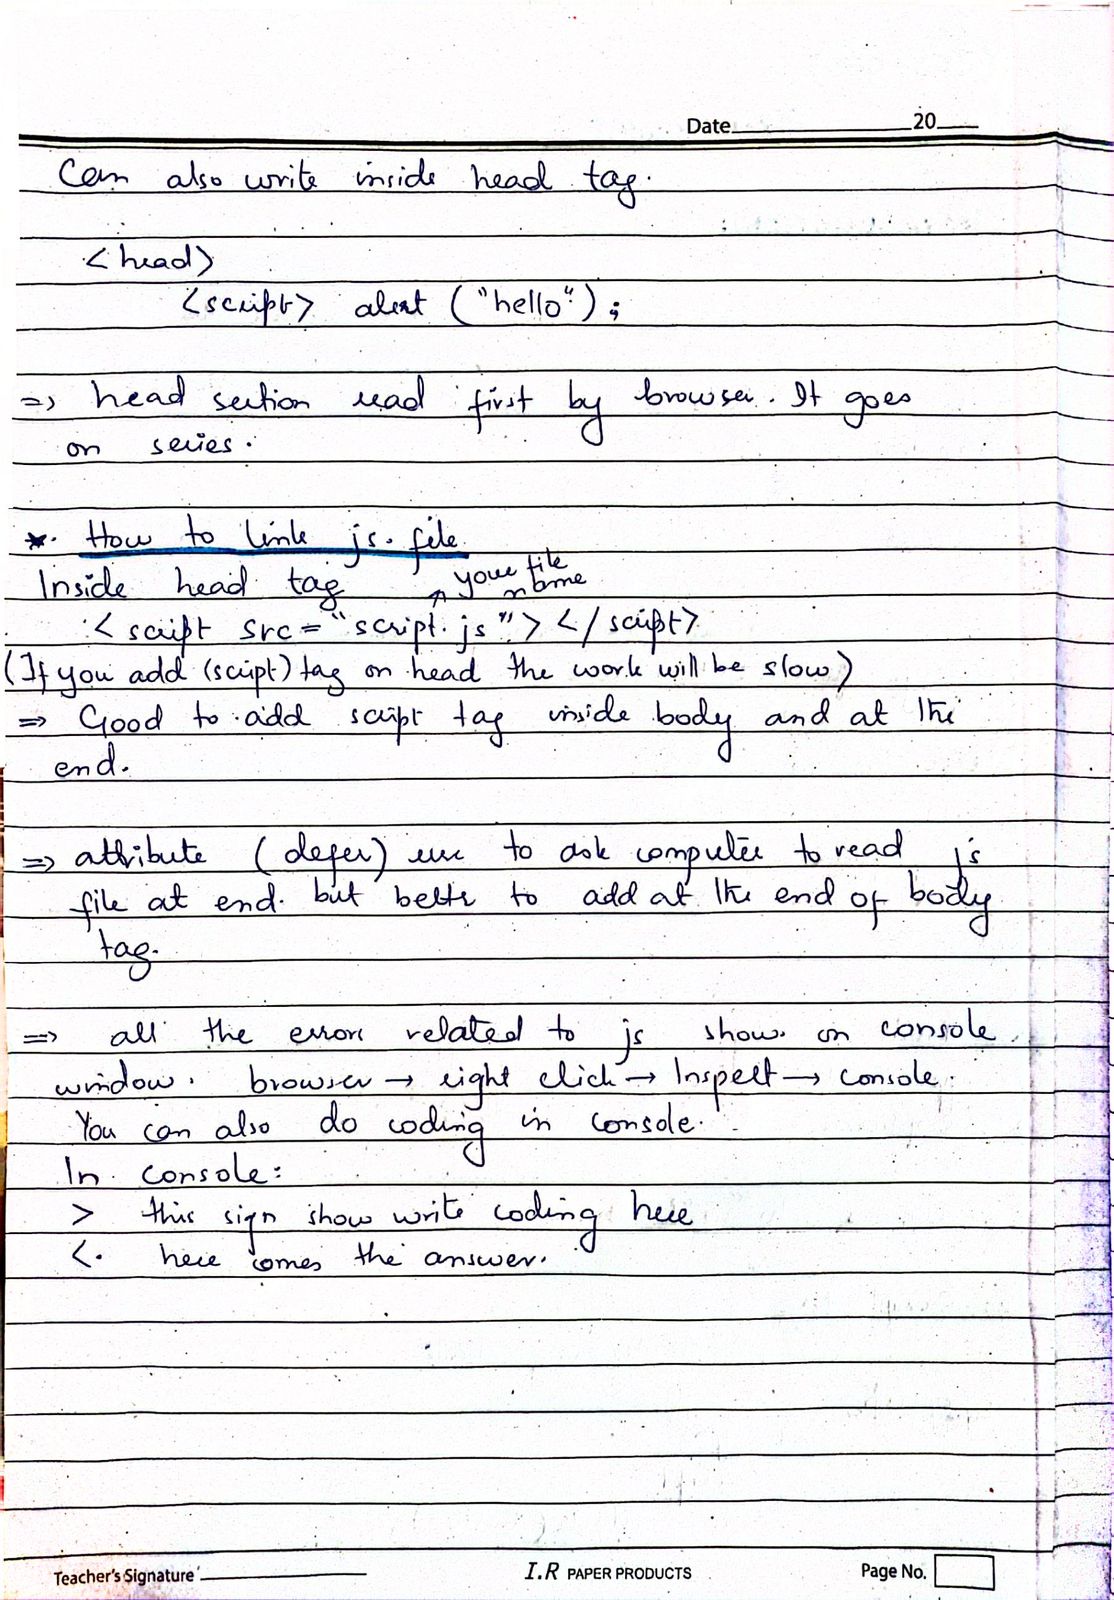 Date 20
Can also write inside head tag.
<head>
<script> alert ("hello") ;
=> head section read first by browser. It goes
on series.
*. How to link js. file.
your file
name
Inside head tag
<script src = "script.js"> </script>
(If you add (script) tag on head the work will be slow)
=> Good to add script tag inside body and at the
end.
=> attribute (defer) use to ask computer to read js
file at end. but bettr to add at the end of body
tag.
=> all the errors related to js shows on console.
window. browser → right click → Inspect → console.
You can also do coding in console.
In console:
> this sign show write coding here
<. here comes the answer.
Teacher's Signature
I.R PAPER PRODUCTS
Page No.